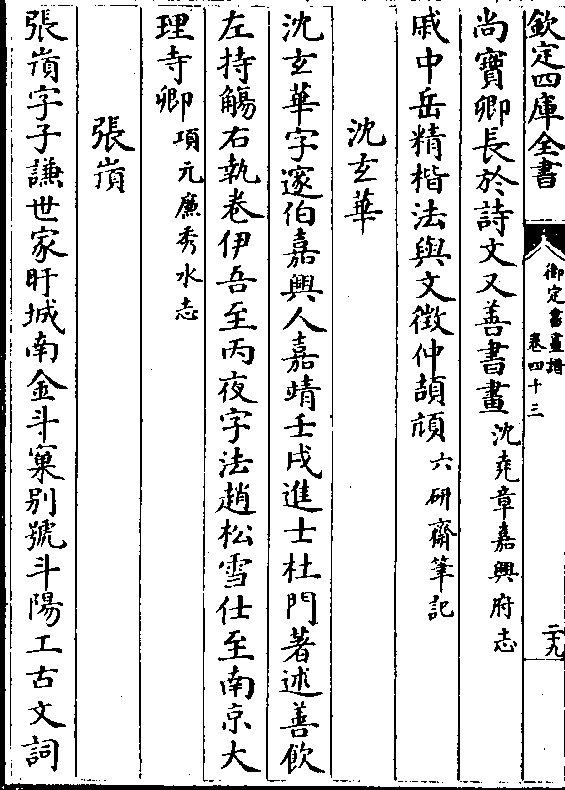 欽定四庫全書
御定書畫譜
卷四十三
二十九
尚寶卿長於詩文又善書畫沈堯章嘉興府志
戚中岳精楷法與文徵仲頡頏六研齋筆記
沈玄華
沈玄華字邃伯嘉興人嘉靖壬戌進士杜門著述善飲
左持觴右執卷伊吾至丙夜字法趙松雪仕至南京大
理寺卿項元㢘秀水志
張𡹘
張𡹘字子謙世家盱城南金斗窠别號斗陽工古文詞